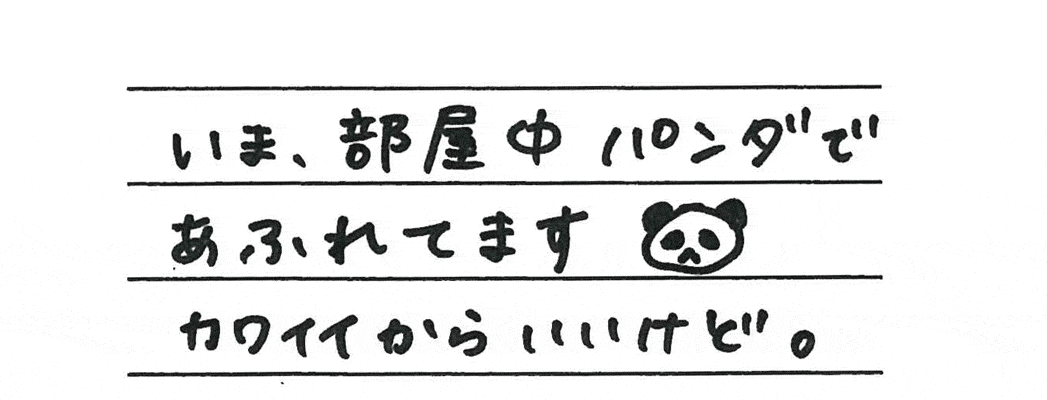 いま、部屋中パンダで
あふれてます
カワイイからいいけど。